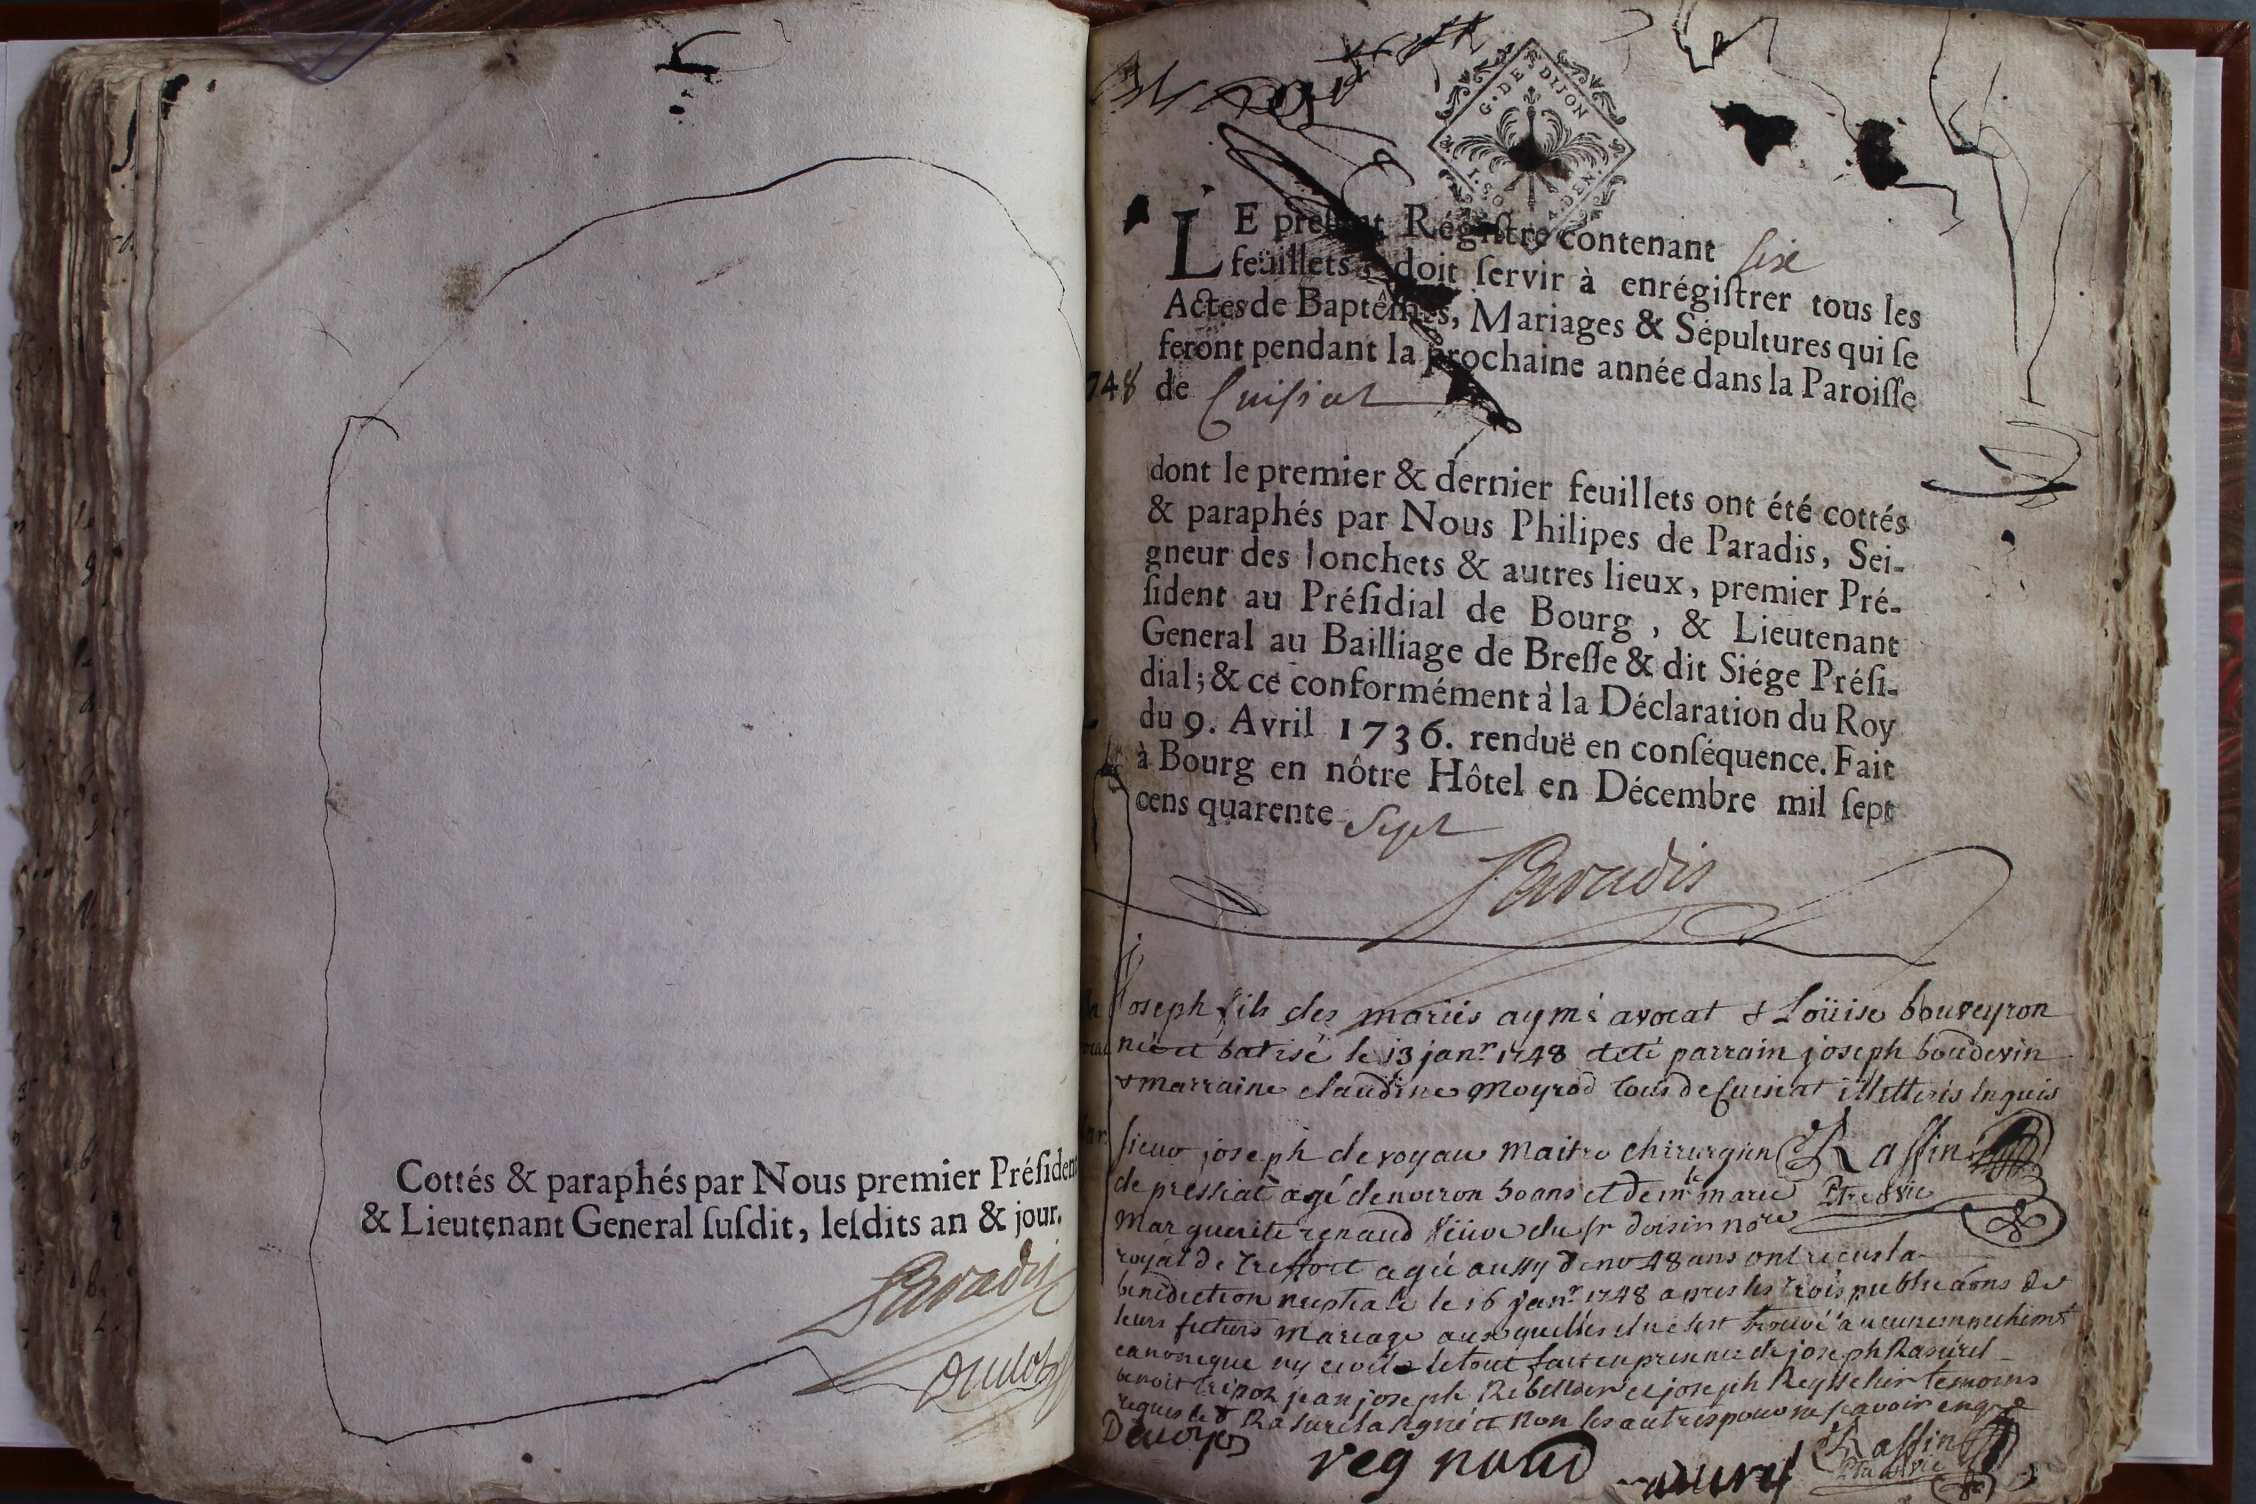 Cottés & paraphés par Nous premier Préſident
& Lieutenant General ſuſdit, leſdits an & jour.
Paradis
G. DE DIJON
LE preſent Régiſtre contenant sixe
feüillets, doit ſervir à enrégiſtrer tous les
Actes de Baptêmes, Mariages & Sépultures qui ſe
feront pendant la prochaine année dans la Paroiſſe
748 de Cuisiat
dont le premier & dernier feuillets ont été cottés
& paraphés par Nous Philipes de Paradis, Sei-
gneur des Ionchets & autres lieux, premier Pré-
ſident au Préſidial de Bourg, & Lieutenant
General au Bailliage de Breſſe & dit Siége Préſi-
dial; & ce conformément à la Déclaration du Roy
du 9. Avril 1736. renduë en conſéquence. Fait
à Bourg en nôtre Hôtel en Décembre mil ſept
cens quarente Sept
Paradis
Joseph fils des mariés aymé avocat & Loüise bouveyron
né et batisé le 13 janr 1748 a eté parrain joseph boudevin
& marraine claudine Moyrod tous de Cuisiat illetteris enquis
Raffin
sieur joseph devoyau maitre chirurgien
de pressiat agé denviron 50 ans et de mlle marie
marguerite renaud veüve du sr doisin nore
royal de treffort agée aussy denv 48 ans ont reçus la
benediction nuptiale le 16 janr 1748 apres les trois publications de
leurs futurs mariage auxquelles il ne sest trouvé aucun empechemt
canonique ny civil le tout fait en presence de joseph Rasurel
benoit jean joseph Rebellier et joseph temoins
requis led Rasurel a signé et non les autres pour ne sçavoir enq
Devoyo
regnaud
Raffin